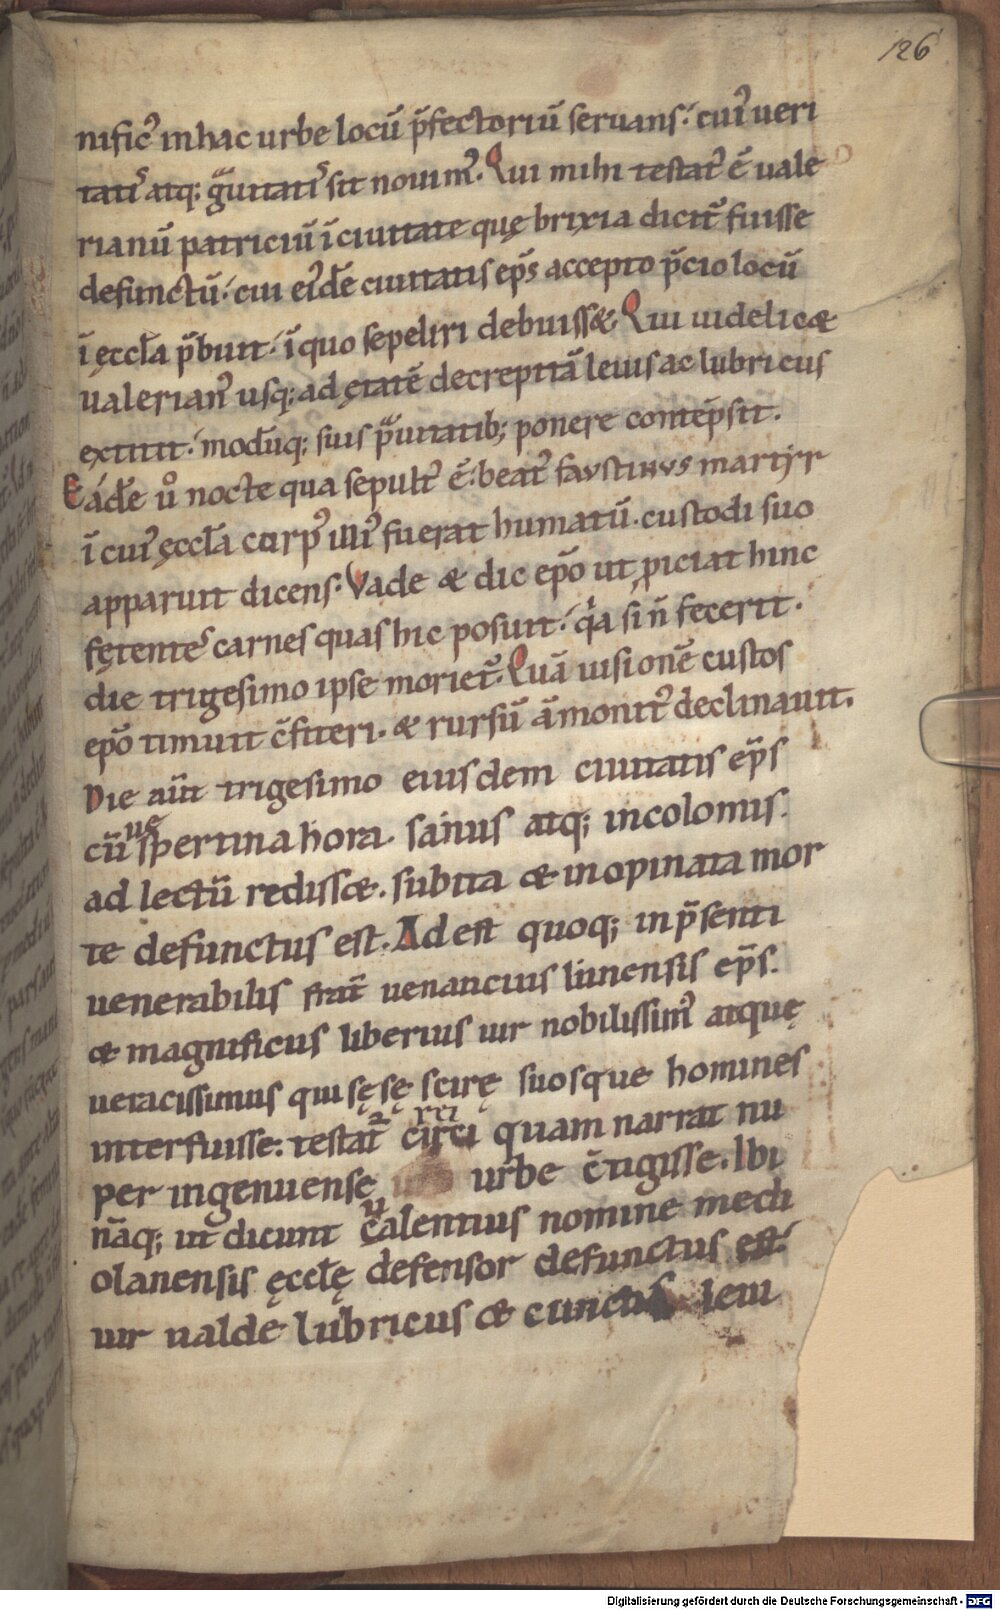 126
nific᷒ inhac urbe locū p̄fectoriū seruans. cui᷒ ueri
tati᷒ atq; gͣuitati᷒ sit nouim᷒. Qui mihi testat᷒ ē uale
rianū patriciū ī ciuitate quę brixia dicit̄ fuisse
defunctū. cui ei᷒dē ciuitatis ep̄s accepto p̄cio locū
ī ęccl̄a p̄buit. ī quo sepeliri debuiss&. Qui uidelic&
ualerian᷒ usq; ad ętatē decrepitā leuis ac lubricus
extitit. modūq; suis pͣuitatib; ponere contēpsit.
Eadē u͛o nocte qua sepult᷒ ē. beat᷒ faustinus martyr
ī cui᷒ ęccl̄a corp᷒ illi᷒ fuerat humatū. custodi suo
apparuit dicens. Vade & dic ep̄o ut piciat hinc
fętente᷒ carnes quas hic posuit. qͥa si n̄ fecerit.
die trigesimo ipse moriet᷒. Quā uisionē custos
ep̄o timuit c̄fiteri. & rursū āmonit᷒ declinauit.
Die aūt trigesimo eiusdem ciuitatis ep̄s
cū ue spertina hora. sanus atq; incolomis.
ad lectū rediss&. subita & inopinata mor
te defunctus est. Adest quoq; in p̄senti
uenerabilis frat̄ uenancius lunensis ep̄s.
& magnificus liberius uir nobilissim᷒ atquę
ueracissimus qui sęsę scirę suosque homines
interfuisse: testat̄ ei rei quam narrat nu
per ingenuense urbe c̄tigisse. Ibi
nāq; ut dicunt ualentius nomine medi
olanensis ęccl̄ę defensor defunctus est.
uir ualde lubricus & cunctis leui
Digitalisierung gefördert durch die Deutsche Forschungsgemeinschaft - DFG